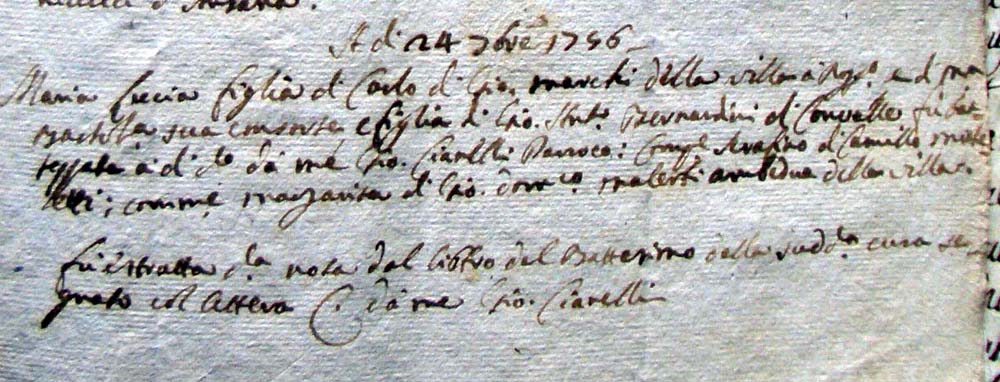 A di 24 7bre 1756
Maria Lucia figlia di Carlo di Gio. Marchi della villa a e di Ma
sua consorte e figlia di Gio. Ant.o Bernardini di Convalle fu bat-
tezzata a di d.o da me Gio. Cianelli Paroco: Comp.e Serafino di Camillo
comme Margarita di Gio. Dom.co ambedue della villa.
fu estratta d.a nota dal libbro del Battesimo della sudd.a cura se
gnato col lettera C. da me Gio. Cianelli